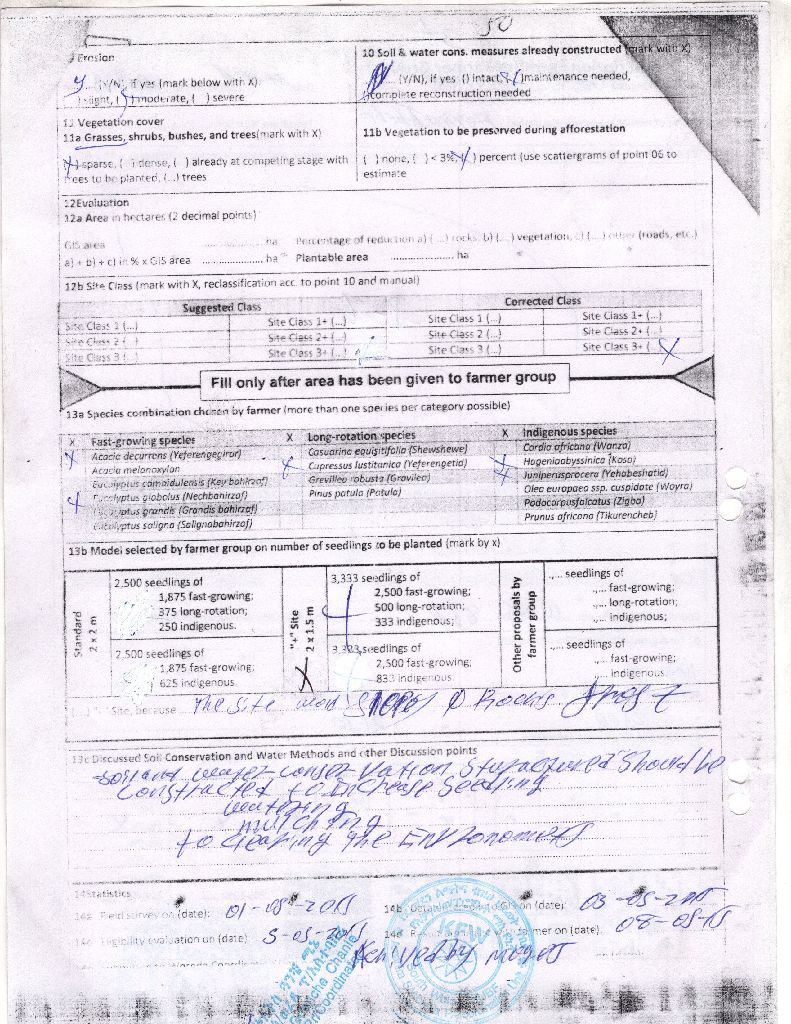 50
Erosion
10 Soil & water cons. measures already constructed (mark with X)
y... (Y/N), if yes (mark below with X):
(Y/N), if yes: () intact, ( )maintenance needed,
) slight, ( ) moderate, ( ) severe
complete reconstruction needed
11 Vegetation cover
11a Grasses, shrubs, bushes, and trees(mark with X)
11b Vegetation to be preserved during afforestation
) sparse, ( ) dense, ( ) already at competing stage with
trees to be planted, (...) trees
( ) none, ( ) < 3% ( ) percent (use scattergrams of point 06 to
estimate
12Evaluation
12a Area in hectares (2 decimal points)
GIS area .................. ha Percentage of reduction a) (...) rocks, b) (...) vegetation, c) (...) other (roads, etc.)
a) + b) + c) in % x GIS area .................. ha Plantable area .................. ha
12b Site Class (mark with X, reclassification acc. to point 10 and manual)
Suggested Class
Corrected Class
Site Class 1 (...) Site Class 1+ (...) Site Class 1 (...) Site Class 1+ (...)
Site Class 2 (...) Site Class 2+ (...) Site Class 2 (...) Site Class 2+ (...)
Site Class 3 (...) Site Class 3+ (...) Site Class 3 (...) Site Class 3+ (...X
Fill only after area has been given to farmer group
13a Species combination chosen by farmer (more than one species per category possible)
X Fast-growing species
X Acacia decurrens (Yeferengegirar)
Acacia melonoxylan
Eucalyptus camaldulensis (Key bahirzaf)
X Eucalyptus globolus (Nechbahirzaf)
Eucalyptus grandis (Grandis bahirzaf)
Eucalyptus saligna (Salignabahirzaf)
X Long-rotation species
Casuarina equisitifolia (Shewshewe)
X Cupressus lustitanica (Yeferengetid)
Grevillea robusta (Gravilea)
Pinus patula (Patula)
X Indigenous species
Cordia africana (Wanza)
X Hageniaabyssinica (Koso)
X Juniperusprocera (Yehabeshatid)
Olea europaea ssp. cuspidate (Woyra)
Podocarpusfalcatus (Zigba)
Prunus africana (Tikurencheb)
13b Model selected by farmer group on number of seedlings to be planted (mark by x)
Standard
2 x 2 m
2,500 seedlings of
1,875 fast-growing;
375 long-rotation;
250 indigenous.
2,500 seedlings of
1,875 fast-growing;
625 indigenous.
"+" Site
2 x 1.5 m
X
3,333 seedlings of
2,500 fast-growing;
500 long-rotation;
333 indigenous;
3,333 seedlings of
2,500 fast-growing;
833 indigenous
Other proposals by
farmer group
..... seedlings of
..... fast-growing;
..... long-rotation;
..... indigenous;
..... seedlings of
..... fast-growing;
..... indigenous.
Site, because The site
13c Discussed Soil Conservation and Water Methods and other Discussion points
Soil and water conservation Should be
to increase Seedling
watering
mulching
to the
14Statistics
14a Field survey on (date): 01-08-2011
14b (date): 03-08-2011
14c Eligibility evaluation on (date): 5-08-2011
14d farmer on (date): 08-08-11
Achived by